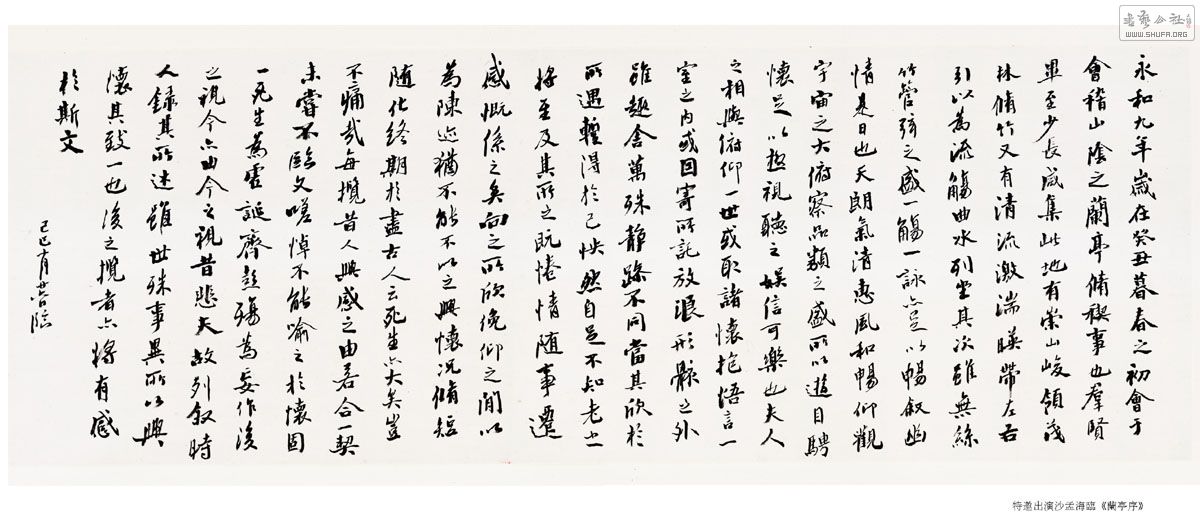 永和九年歲在癸丑暮春之初會于
會稽山陰之蘭亭脩稧事也羣賢
畢至少長咸集此地有崇山峻領茂
林脩竹又有清流激湍暎帶左右
引以為流觴曲水列坐其次雖無絲
竹管弦之盛一觴一詠亦足以暢叙幽
情是日也天朗氣清惠風和暢仰觀
宇宙之大俯察品類之盛所以遊目騁
懷足以極視聽之娛信可樂也夫人
之相與俯仰一世或取諸懷抱悟言一
室之內或因寄所託放浪形骸之外
雖趣舍萬殊靜躁不同當其欣於
所遇暫得於己怏然自足不知老之
將至及其所之既惓情隨事遷
感慨係之矣向之所欣俛仰之間以
為陳迹猶不能不以之興懷況脩短
隨化終期於盡古人云死生亦大矣豈
不痛哉每攬昔人興感之由若合一契
未嘗不臨文嗟悼不能喻之於懷固
一死生為虛誕齊彭殤為妄作後
之視今亦由今之視昔悲夫故列叙時
人錄其所述雖世殊事異所以興
懷其致一也後之攬者亦將有感
於斯文
己巳月臨
書藝公社
WWW.SHUFA.ORG
特邀出演沙孟海臨《蘭亭序》